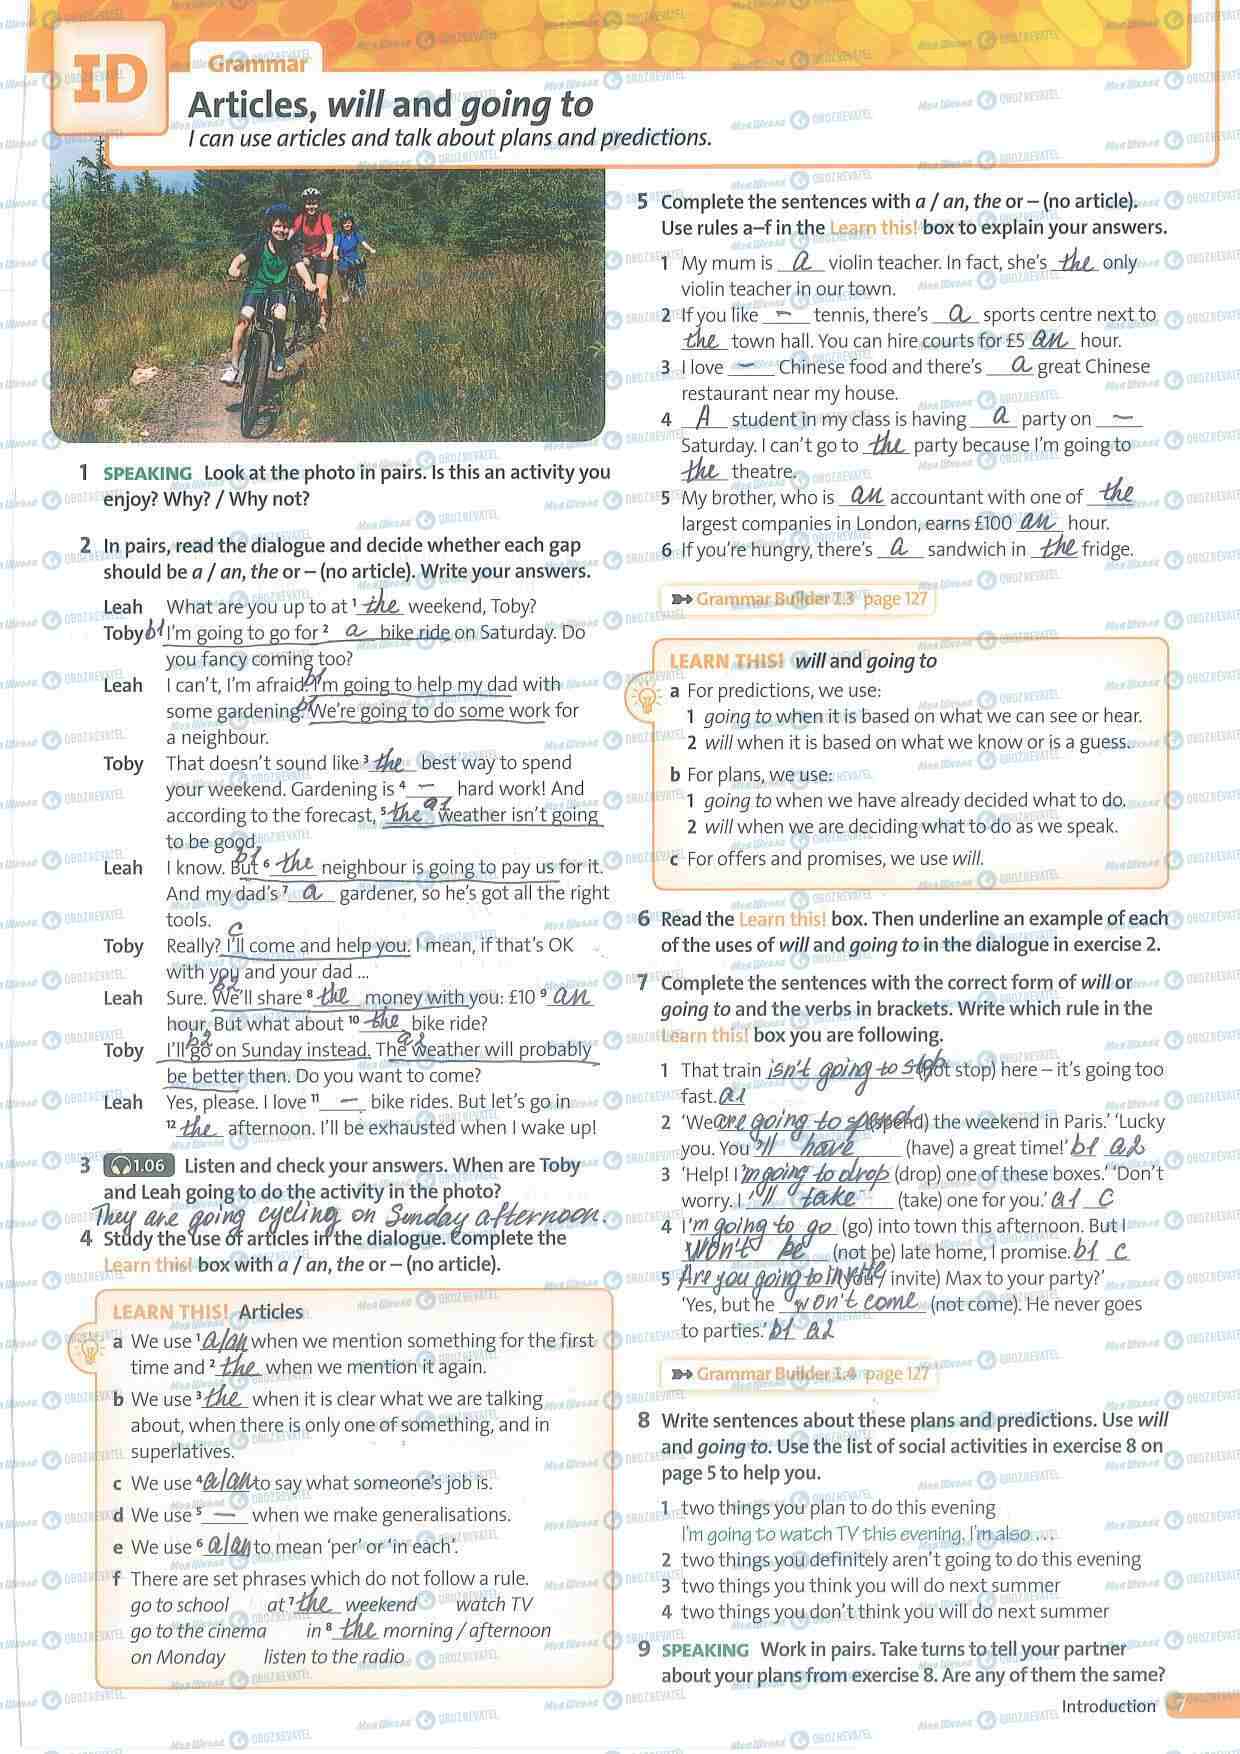 ID
Grammar
Articles, will and going to
I can use articles and talk about plans and predictions.
1 SPEAKING Look at the photo in pairs. Is this an activity you
enjoy? Why? / Why not?
2 In pairs, read the dialogue and decide whether each gap
should be a / an, the or – (no article). Write your answers.
Leah What are you up to at ¹ the weekend, Toby?
Toby b1 I'm going to go for ² a bike ride on Saturday. Do
you fancy coming too?
b1
Leah I can't, I'm afraid. I'm going to help my dad with
some gardening. b1 We're going to do some work for
a neighbour.
Toby That doesn't sound like ³ the best way to spend
your weekend. Gardening is ⁴ – hard work! And
a1
according to the forecast, ⁵ the weather isn't going
to be good.
b1
Leah I know. But ⁶ the neighbour is going to pay us for it.
And my dad's ⁷ a gardener, so he's got all the right
tools.
c
Toby Really? I'll come and help you. I mean, if that's OK
with you and your dad ...
b2
Leah Sure. We'll share ⁸ the money with you: £10 ⁹ an
hour. But what about ¹⁰ the bike ride?
b2 a2
Toby I'll go on Sunday instead. The weather will probably
be better then. Do you want to come?
Leah Yes, please. I love ¹¹ – bike rides. But let's go in
¹² the afternoon. I'll be exhausted when I wake up!
3 1.06 Listen and check your answers. When are Toby
and Leah going to do the activity in the photo?
They are going cycling on Sunday afternoon.
4 Study the use of articles in the dialogue. Complete the
Learn this! box with a / an, the or – (no article).
LEARN THIS! Articles
a We use ¹ a/an when we mention something for the first
time and ² the when we mention it again.
b We use ³ the when it is clear what we are talking
about, when there is only one of something, and in
superlatives.
c We use ⁴ a/an to say what someone's job is.
d We use ⁵ – when we make generalisations.
e We use ⁶ a/an to mean 'per' or 'in each'.
f There are set phrases which do not follow a rule.
go to school at ⁷ the weekend watch TV
go to the cinema in ⁸ the morning / afternoon
on Monday listen to the radio
5 Complete the sentences with a / an, the or – (no article).
Use rules a–f in the Learn this! box to explain your answers.
1 My mum is a violin teacher. In fact, she's the only
violin teacher in our town.
2 If you like – tennis, there's a sports centre next to
the town hall. You can hire courts for £5 an hour.
3 I love – Chinese food and there's a great Chinese
restaurant near my house.
4 A student in my class is having a party on –
Saturday. I can't go to the party because I'm going to
the theatre.
5 My brother, who is an accountant with one of the
largest companies in London, earns £100 an hour.
6 If you're hungry, there's a sandwich in the fridge.
Grammar Builder I.3 page 127
LEARN THIS! will and going to
a For predictions, we use:
1 going to when it is based on what we can see or hear.
2 will when it is based on what we know or is a guess.
b For plans, we use:
1 going to when we have already decided what to do.
2 will when we are deciding what to do as we speak.
c For offers and promises, we use will.
6 Read the Learn this! box. Then underline an example of each
of the uses of will and going to in the dialogue in exercise 2.
7 Complete the sentences with the correct form of will or
going to and the verbs in brackets. Write which rule in the
Learn this! box you are following.
1 That train isn't going to stop (not stop) here – it's going too
fast. a1
2 'We are going to spend (spend) the weekend in Paris.' 'Lucky
you. You 'll have (have) a great time!' b1 a2
3 'Help! I 'm going to drop (drop) one of these boxes.' 'Don't
worry. I 'll take (take) one for you.' a1 c
4 I 'm going to go (go) into town this afternoon. But I
won't be (not be) late home, I promise. b1 c
5 Are you going to invite (you / invite) Max to your party?'
'Yes, but he won't come (not come). He never goes
to parties.' b1 a2
Grammar Builder I.4 page 127
8 Write sentences about these plans and predictions. Use will
and going to. Use the list of social activities in exercise 8 on
page 5 to help you.
1 two things you plan to do this evening
I'm going to watch TV this evening. I'm also ...
2 two things you definitely aren't going to do this evening
3 two things you think you will do next summer
4 two things you don't think you will do next summer
9 SPEAKING Work in pairs. Take turns to tell your partner
about your plans from exercise 8. Are any of them the same?
Introduction 7